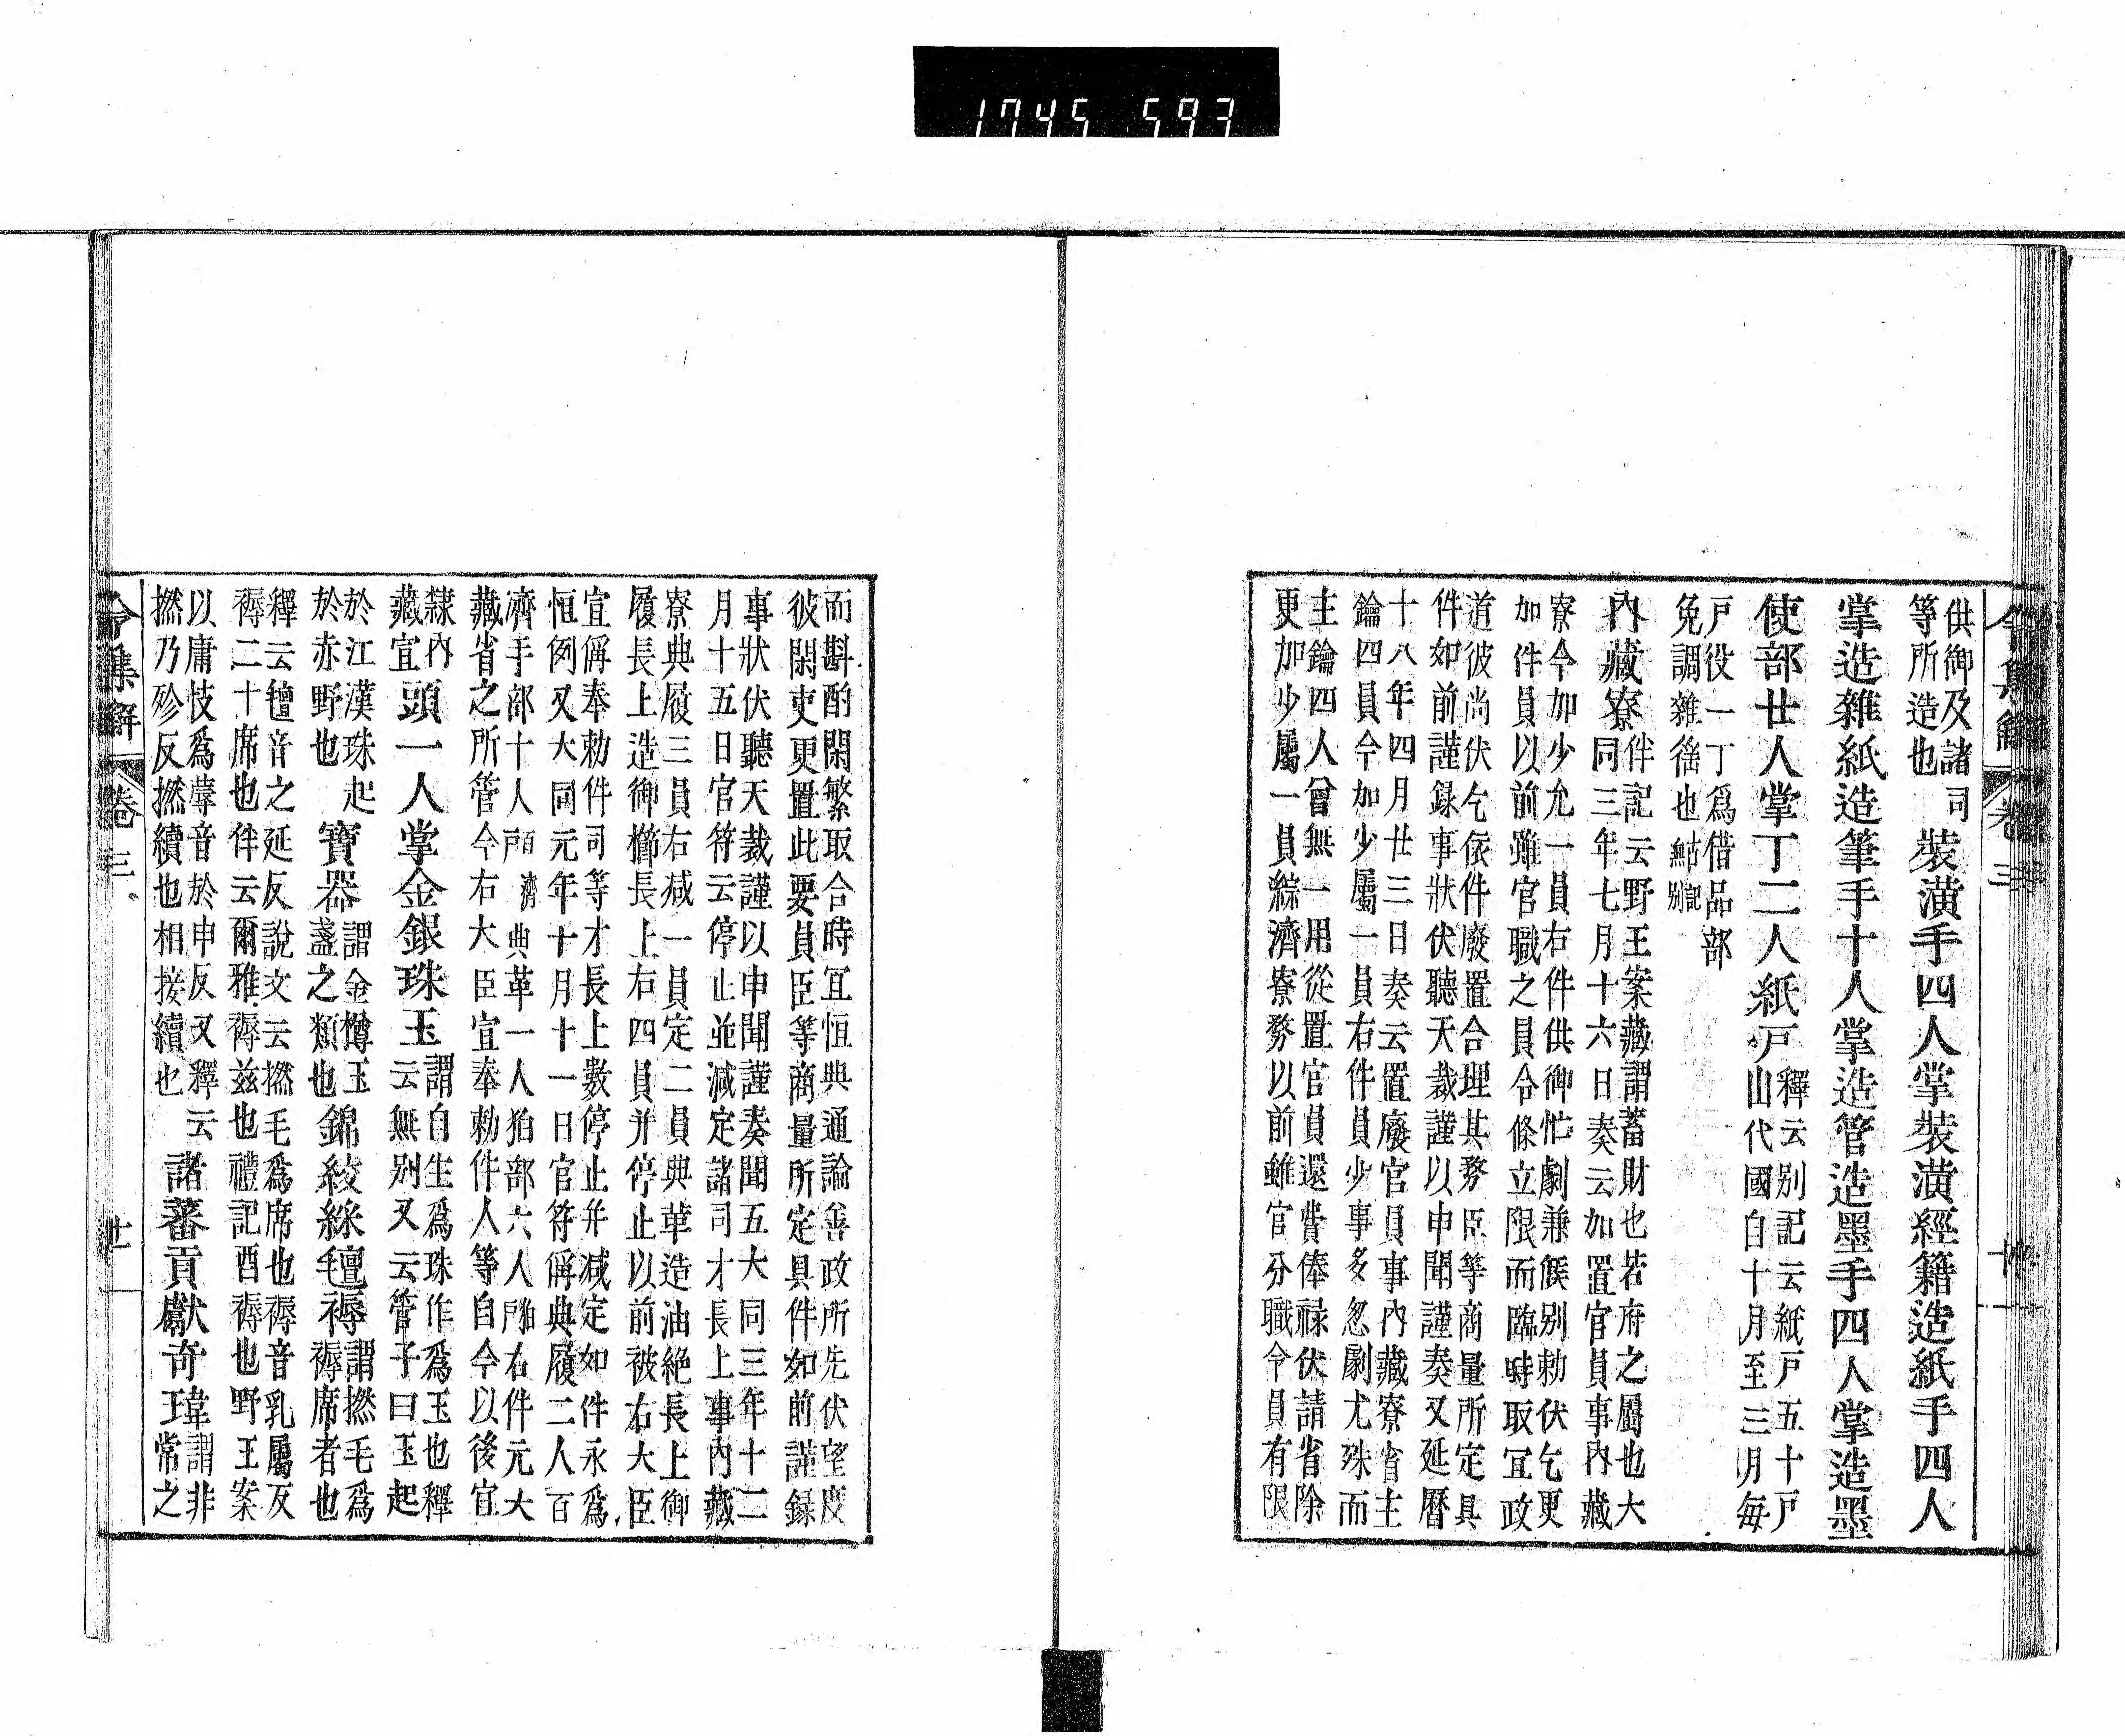 1745 593
令集解 卷三
供御及諸司
等所造也
裝潢手四人掌裝潢經籍造紙手四人
掌造雜紙造筆手十人掌造管造墨手四人掌造墨
使部廿人掌丁二人紙戸
釋云別記云紙戸五十戸
山代國自十月至三月每
戸役一丁爲借品部
免調雜徭也
古記
無別
內藏寮
伴記云野王案藏謂蓄財也若府之屬也大
同三年七月十六日奏云加置官員事內藏
寮今加少允一員右件供御忙劇兼候別勅伏乞更
加件員以前雖官職之員令條立限而臨時取冝政
道彼尚伏乞依件廢置合理其務臣等商量所定具
件如前謹録事狀伏聽天裁謹以申聞謹奏又延曆
十八年四月廿三日奏云置廢官員事內藏寮省主
鑰四員今加少屬一員右件員少事多忽劇尤殊而
主鑰四人曾無一用從置官員還費俸祿伏請省除
更加少屬一員綜濟寮務以前雖官分職令員有限
而斟酌閑繁取合時冝恒典通論善政所先伏望度
彼閑吏更置此要員臣等商量所定具件如前謹録
事狀伏聽天裁謹以申聞謹奏聞五大同三年十二
月十五日官符云停止並減定諸司才長上事內藏
寮典履三員右減一員定二員典革造油絶長上御
履長上造御櫛長上右四員并停止以前被右大臣
宣偁奉勅件司等才長上數停止并減定如件永爲
恒例又大同元年十月十一日官符偁典履二人百
濟手部十人
典革一人狛部六人
右件元大
藏省之所管今右大臣宣奉勅件人等自今以後宜
隸內
藏宜
頭一人掌金銀珠玉
謂自生爲珠作爲玉也釋
云無別又云管子曰玉起
於江漢珠起
於赤野也
寶器
謂金罇玉
盞之類也
錦綾綵氊褥
謂撚毛爲
褥席者也
釋云氊音之延反說文云撚毛爲席也褥音乳屬反
褥二十席也伴云爾雅褥玆也禮記酉褥也野王案
以庸忮爲蓐音於申反又釋云
撚乃殄反撚續也相接續也
諸蕃貢獻奇瑋
謂非
常之
令集解 卷三 廿一